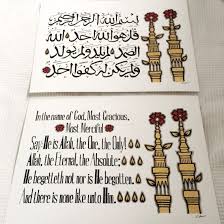 بسم الله الرحمن الرحيم
قل هو الله احد الله
الصمد لم يلد ولم يولد
ولم يكن له كفوا احد
In the name of God, Most Gracious,
Most Merciful
Say: He is Allah, the One, the Only!
Allah, the Eternal, the Absolute;
He begetteth not nor is He begotten.
And there is none like unto Him.